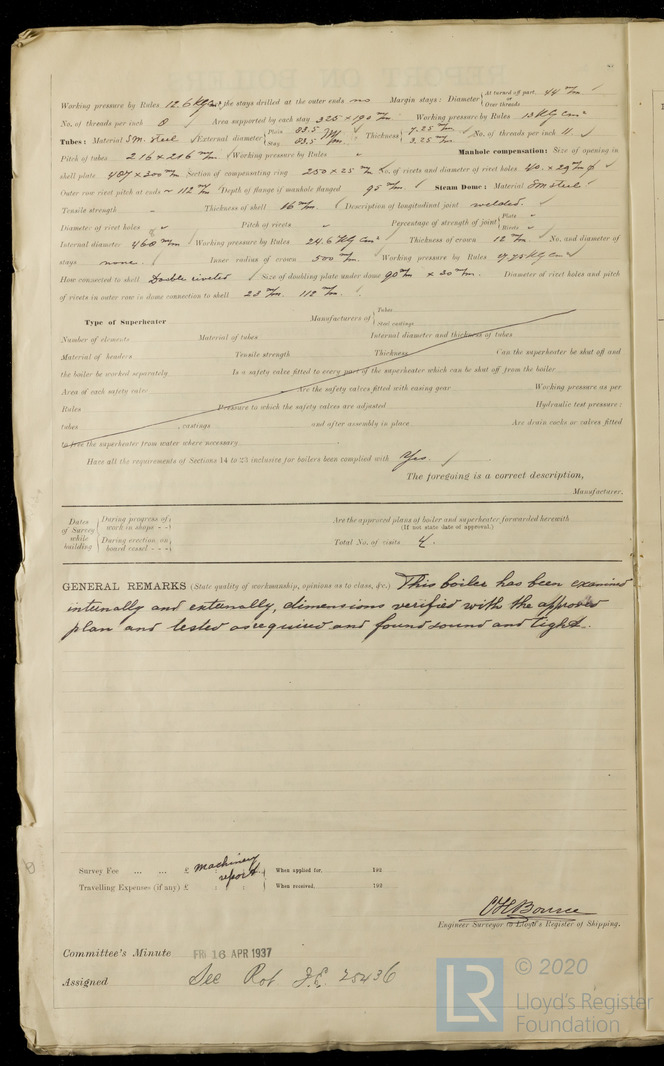 Working pressure by Rules 12.6 Kg/cm² Are stays drilled at the outer ends no Margin stays: Diameter { At turned off part, 44 m/m or Over threads
No. of threads per inch 8 Area supported by each stay 325 × 190 m/m Working pressure by Rules 13 Kg cm²
Tubes: Material S.M. steel External diameter { Plain 83.5 m/m Stay 83.5 m/m Thickness { 7.25 m/m 3.25 m/m No. of threads per inch 11
Pitch of tubes 216 × 216 m/m Working pressure by Rules " Manhole compensation: Size of opening in
shell plate 407 × 300 m/m Section of compensating ring 250 × 25 m/m No. of rivets and diameter of rivet holes 40 × 29 m/m ϕ
Outer row rivet pitch at ends ~ 112 m/m Depth of flange if manhole flanged 95 m/m Steam Dome: Material S M steel
Tensile strength " Thickness of shell 16 m/m Description of longitudinal joint welded.
Diameter of rivet holes " Pitch of rivets " Percentage of strength of joint { Plate " Rivets "
Internal diameter 468 m/m Working pressure by Rules 24.6 Kg cm² Thickness of crown 12 m/m No. and diameter of
stays none. Inner radius of crown 500 m/m Working pressure by Rules 17.75 Kg cm²
How connected to shell Double riveted Size of doubling plate under dome 90 m/m × 20 m/m. Diameter of rivet holes and pitch
of rivets in outer row in dome connection to shell 23 m/m. 112 m/m.
Type of Superheater Manufacturers of { Tubes Steel castings
Number of elements Material of tubes Internal diameter and thickness of tubes
Material of headers Tensile strength Thickness Can the superheater be shut off and
the boiler be worked separately Is a safety valve fitted to every part of the superheater which can be shut off from the boiler
Area of each safety valve Are the safety valves fitted with easing gear Working pressure as per
Rules Pressure to which the safety valves are adjusted Hydraulic test pressure:
tubes , castings and after assembly in place Are drain cocks or valves fitted
to free the superheater from water where necessary
Have all the requirements of Sections 14 to 23 inclusive for boilers been complied with Yes.
The foregoing is a correct description,
Manufacturer.
Dates of Survey while building { During progress of work in shops - - Are the approved plans of boiler and superheater forwarded herewith
(If not state date of approval.)
During erection on board vessel - - - Total No. of visits 4.
GENERAL REMARKS (State quality of workmanship, opinions as to class, &c.) This boiler has been examined
internally and externally, dimensions verified with the approved
plan and tested as required and found sound and tight.
Survey Fee ... ... £ machinery report When applied for, 192
Travelling Expenses (if any) £ When received, 192
C H Bourse
Engineer Surveyor to Lloyd's Register of Shipping.
Committee's Minute FRI 16 APR 1937
Assigned See Rpt J.E. 25436
LR © 2020
Lloyd's Register
Foundation